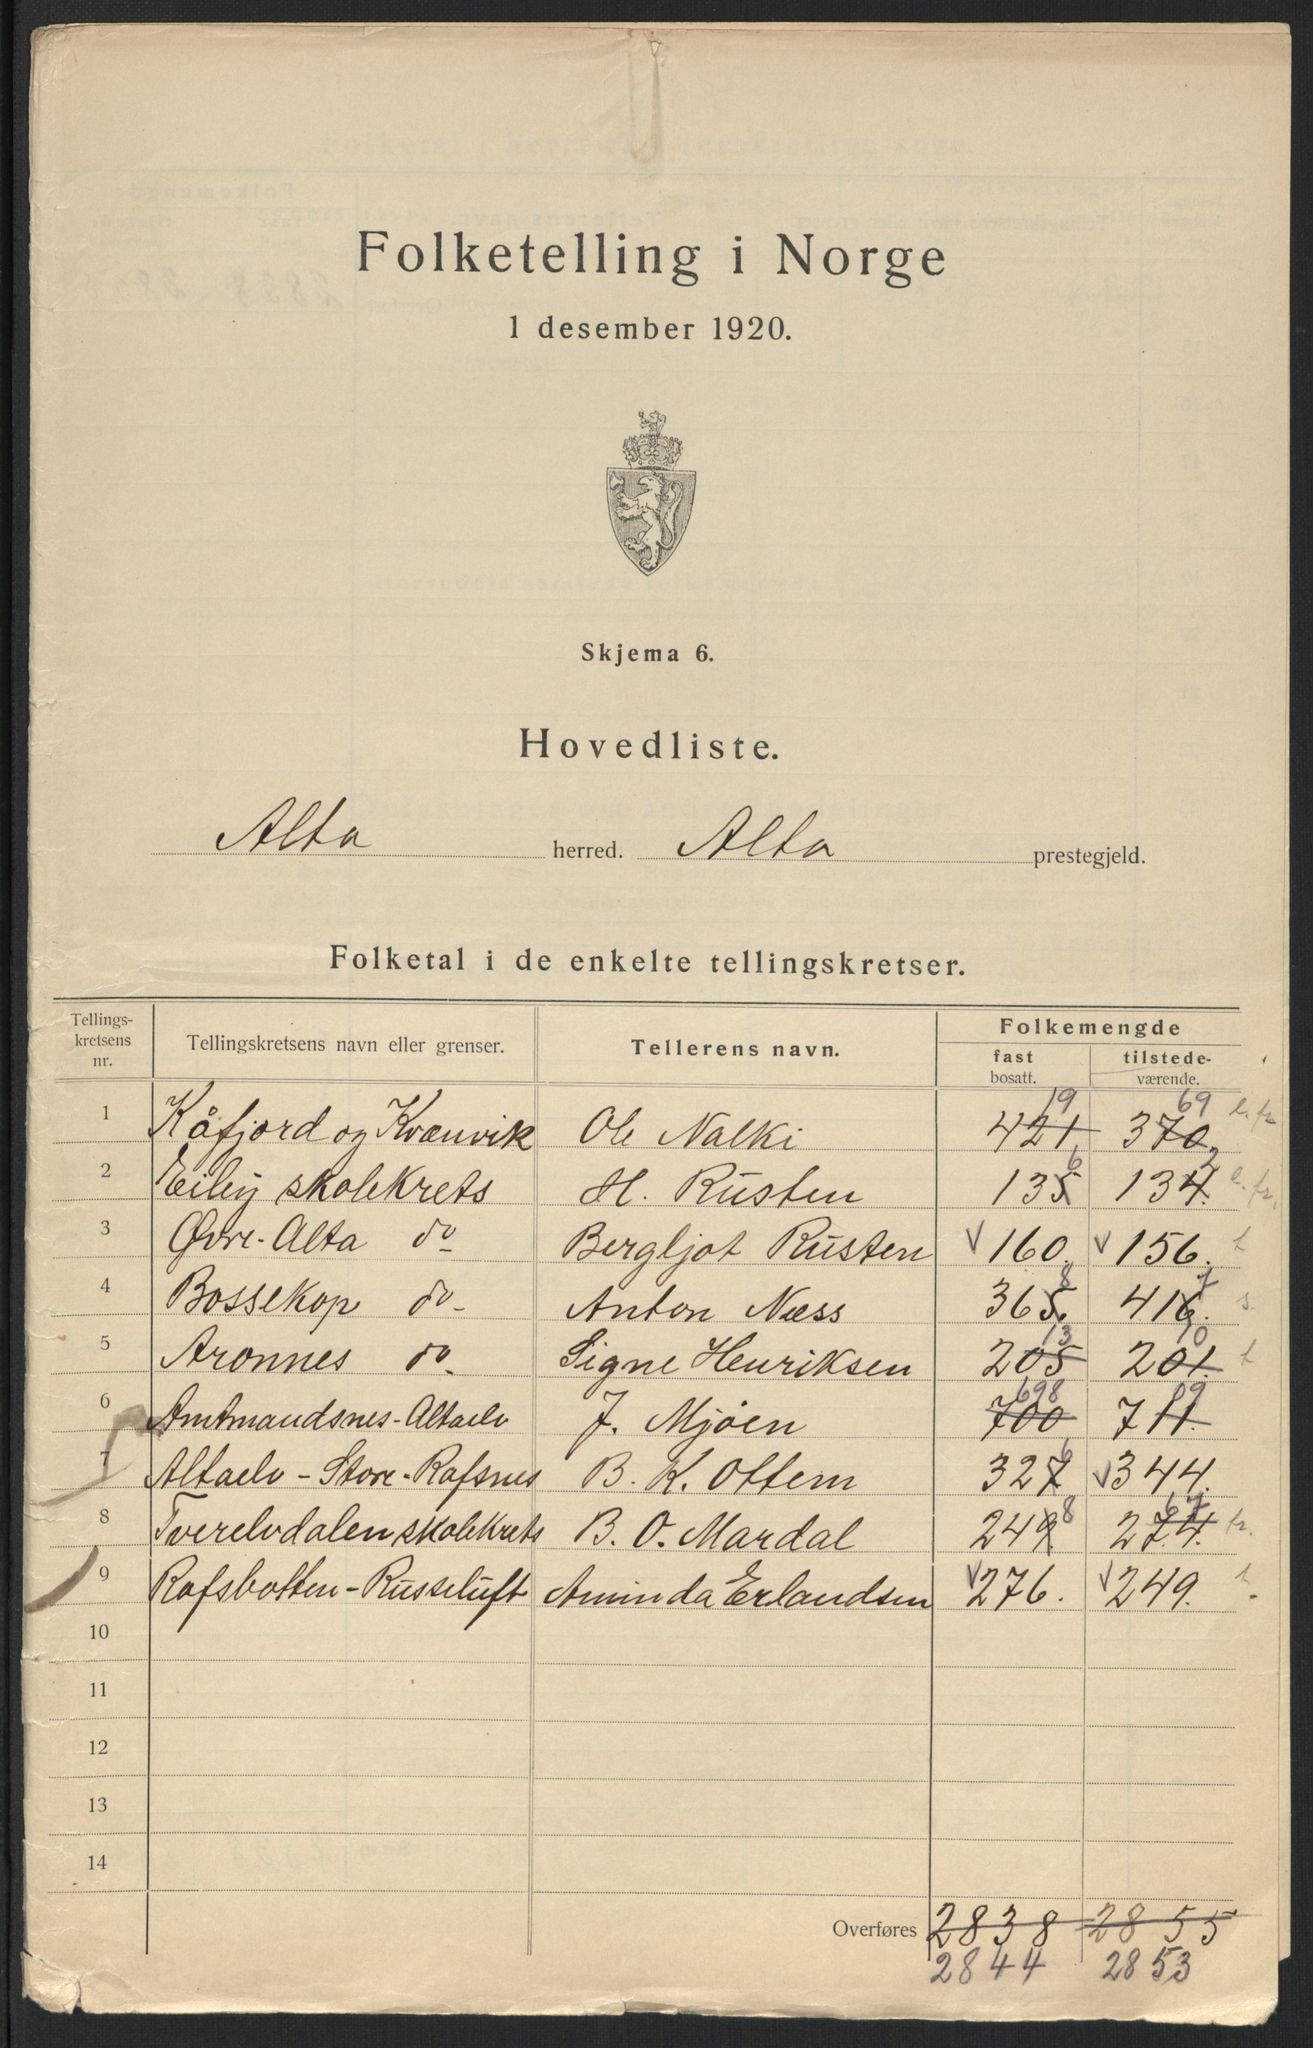 Folketelling i Norge
1 desember 1920.
Skjema 6.
Hovedliste.
Alta herred. Alta prestegjeld.
Folketal i de enkelte tellingskretser.
Tellings-
kretsens
nr.
Tellingskretsens navn eller grenser.
Tellerens navn.
Folkemengde
fast
bosatt.
tilstede-
værende.
19 69
1 Kåfjord og Kvænvik Ole Nalki 421 370 l. fr
6 2
2 Eiby skolekrets H. Rüsten 135 134. l. fr.
3 Øvre-Alta do- Bergljot Rüsten V 160. V 156. t
8 7
4 Bossekop do- Anton Næss 365. 416. s.
13 10
5 Aronnes do- Signe Henriksen 205 201. t
698 09
6 Amtmandsnes-Altaelv J. Mjöen 700 711.
6
7 Altaelv - Store-Rafsnes B. K. Ottem 327 V 344.
67
8 Tverelvdalen skolekrets B. O. Mardal 249 8 274. fr.
9 Rafsbotten-Russeluft Aminda Erlandsen V 276. V 249. t.
10
11
12
13
14
Overføres 2838 2855
2844 2853